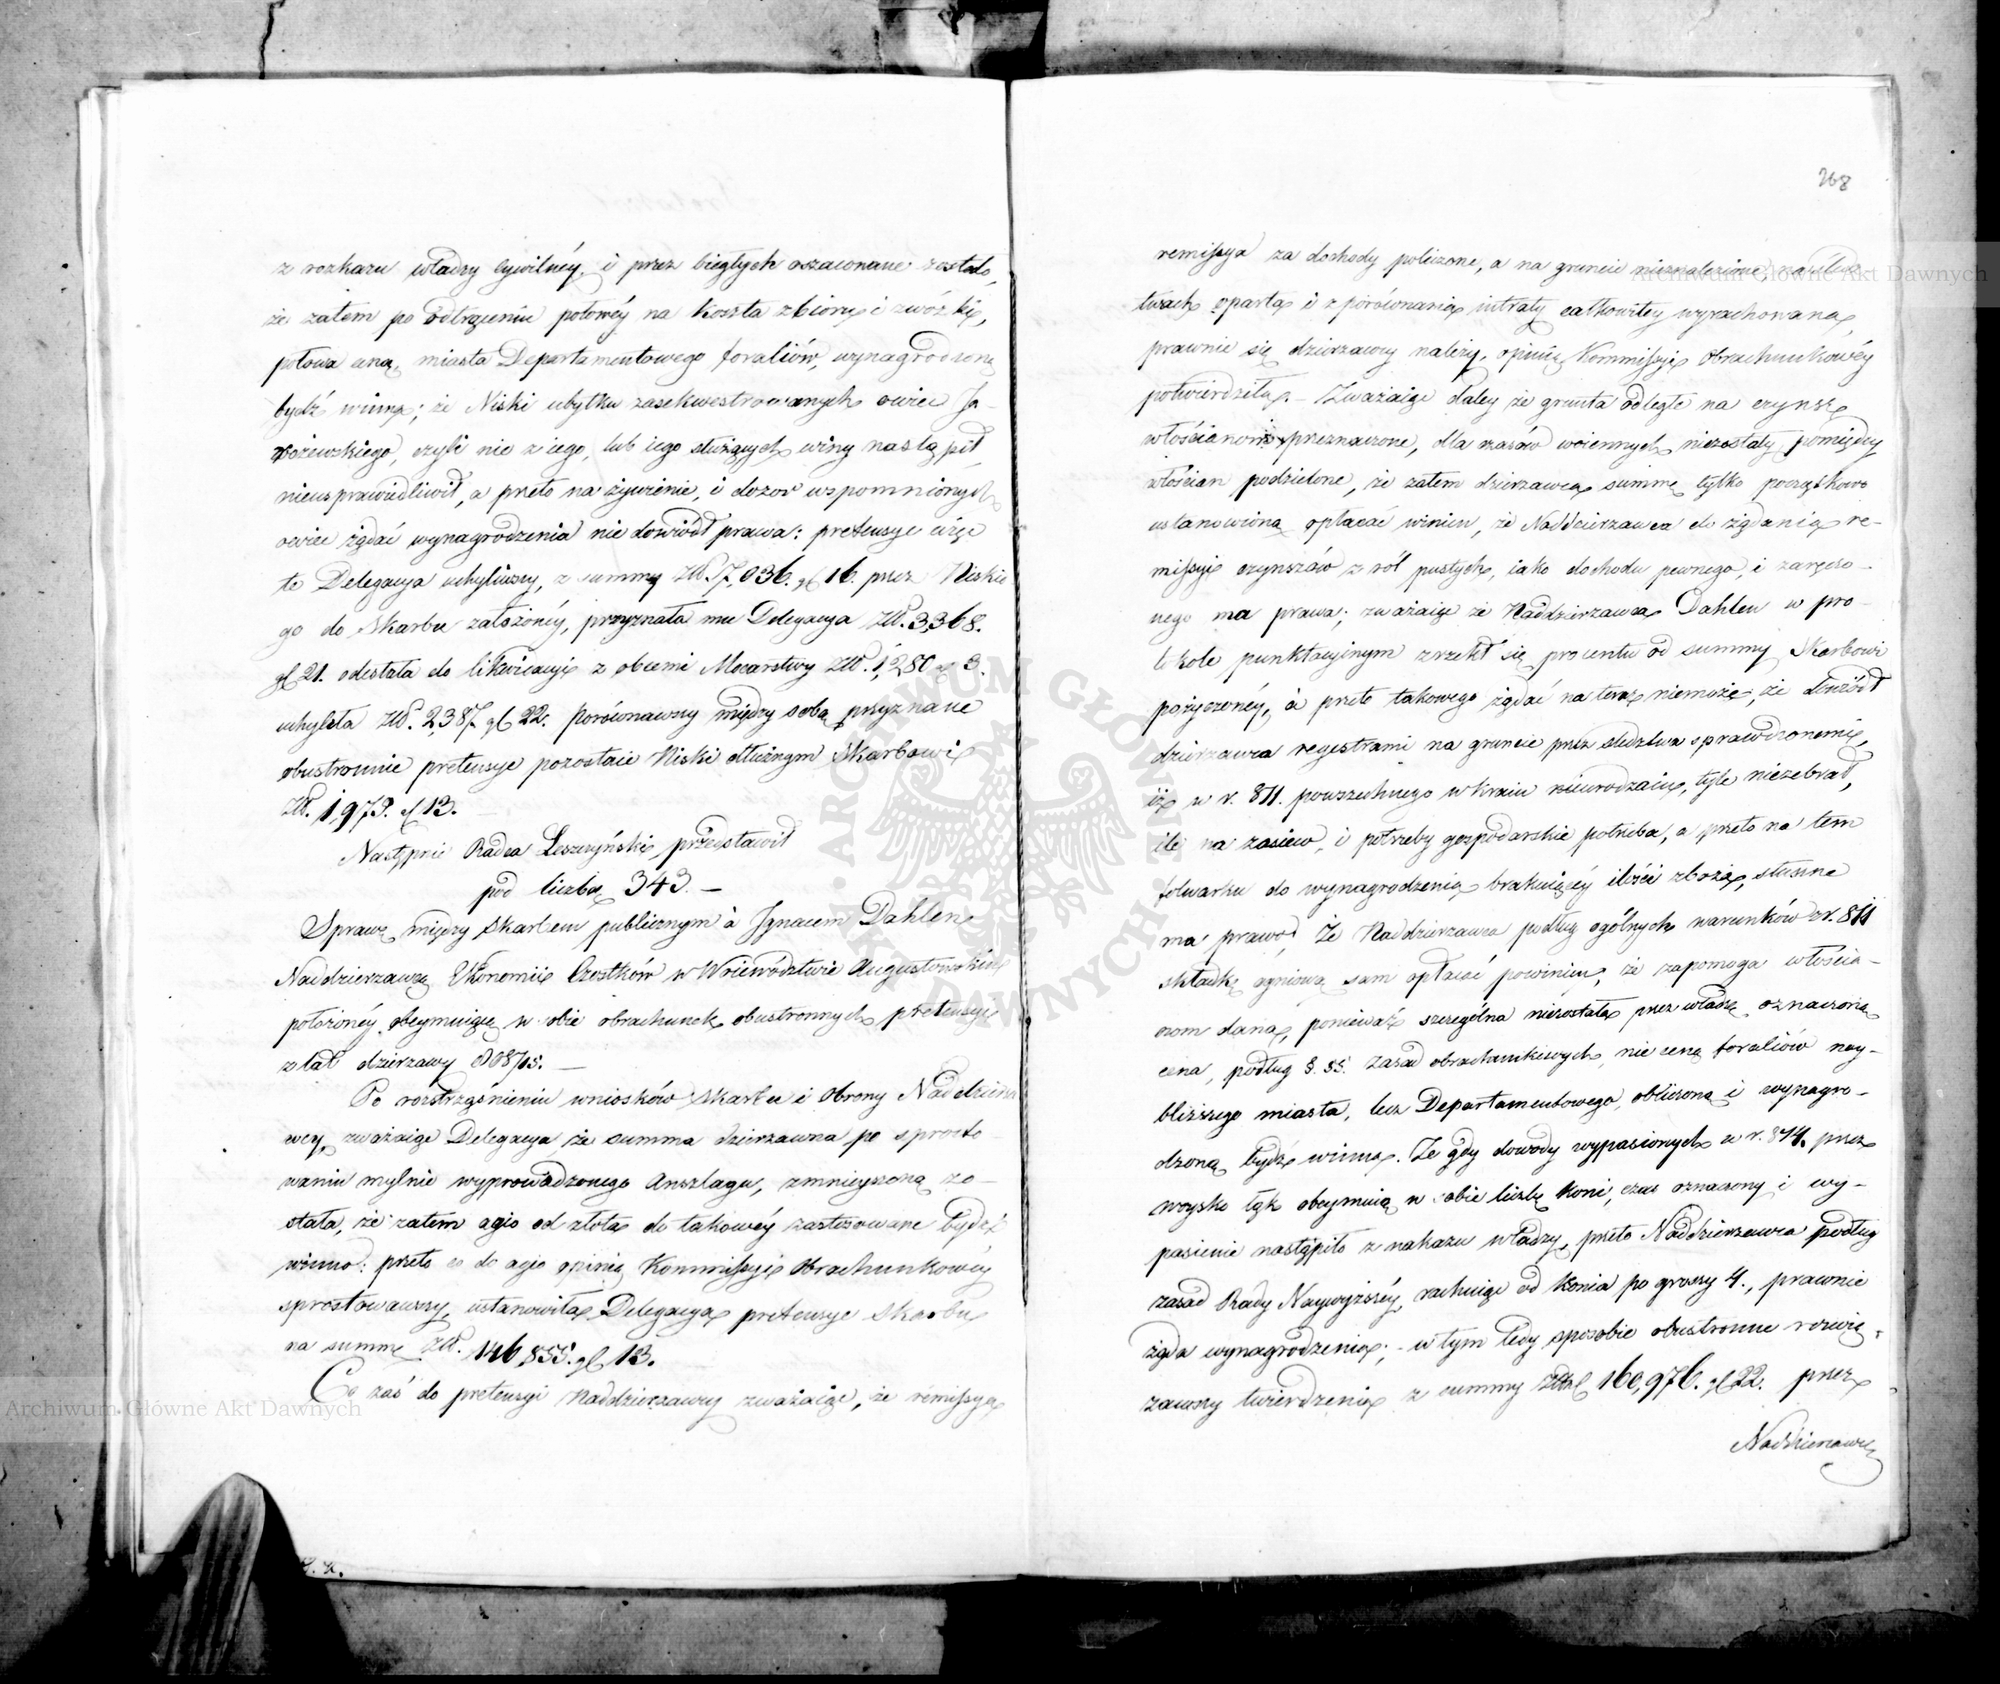 z rozkazu władzy cywilnéy, i przez biegłych oszacowane zostało,
że zatem po odtrąceniu połowéy na koszta zbioru i zwózki,
połowa ceną, miasta Departamentowego foraliów, wynagrodzoną
bydź winna; że Niski ubytku zasekwestrowanych owiec
czyli nie z iego, lub iego służących winy nastąpił,
nieusprawiedliwił, a przeto na żywienie, i dozor wspomnionych
owiec żądać wynagrodzenia nie dowiódł prawa: pretensye więc
te Delegacya uchyliwszy, z summy Złł. 7,036. gl 16. przez Niskie
go do Skarbu założonéy, przyznała mu Delegacya Złł. 3,368.
gl 21. odesłała do likwidacyi z obcemi Mocarstwy Złł. 1,280 gl 3.
uchyliła Złł. 2,387 gl 22. porównawszy między sobą przyznane
obustronnie pretensye pozostaie Niski dłużnym Skarbowi
Złł. 1,973. gl 13.
Następnie Radca Leszczyński przedstawił
pod liczbą 343. —
Sprawę między Skarbem publicznym à Ignacem Dahlen
Naddzierzawcą Ekonomii Czostków w Woiewództwie Augustowskim
położonéy, obeymuiącą w sobie obrachunek obustronnych pretensyi
z lat dzierzawy 1808/15. —
Po roztrząśnieniu wniosków Skarbu i Obrony Naddzierza
wcy, zważaiąc Delegacya, że summa dzierzawna po sprosto
waniu mylnie wyprowadzonego Anszlagu, zmnieyszoną zo-
stała, że zatem agio od złota do takowéy zastosowane bydź
winno: przeto co do agio opinią Kommissyi Obrachunkowéy
sprostowawszy, ustanowiła Delegacya pretensye Skarbu
na summę Złł. 146,855. gl 13.
Co zaś do pretensyi Naddzierzawcy zważaiąc, że remissya
268
remissya za dochody policzone, a na gruncie nieznalezione, na śledz
twach oparta i z porównania intraty całkowitey wyrachowana,
prawnie się dzierzawcy należy, opinią Kommissyi Obrachunkowéy
potwierdziła. — Zważaiąc daley że grunta odległe na czynsz
włościanom przeznaczone, dla czasów woiennych niezostały pomiędzy
włościan podzielone, że zatem dzierzawca summę tylko początkowo
ustanowioną opłacać winien, że Naddzierzawca do żądania re-
missyi czynszów z ról pustych, iako dochodu pewnego, i zaręczo-
nego ma prawa; zważaiąc że Naddzierzawca Dahlen w pro-
tokole punktacyinym zrzekł się procentu od summy Skarbowi
pożyczonéy, à przeto takowego żądać na teraz niemoże, że dowiódł
dzierzawca regestrami na gruncie przez śledztwa sprawdzonemi,
iż w r. 811. powszechnego w Kraiu nieurodzaiu, tyle niezebrał,
ile na zasiew, i potrzeby gospodarskie potrzeba, a przeto na tem
folwarku do wynagrodzenia brakuiącéy ilości zboża, słuszne
ma prawo. Że Naddzierzawca podług ogólnych warunków z r. 811
składkę ogniową sam opłacać powinien; że zapomoga włościa-
nom dana, ponieważ szczególna niezostała przez władzę oznaczona
cena, podług §. 55. zasad obrachunkowych, nie ceną foraliów nay-
bliższego miasta, lecz Departamentowego, obliczoną i wynagro-
dzoną bydź winna. Że gdy dowody wypasionych w r. 814. przez
woysko łąk obeymuią w sobie liczbę koni, czas oznaczony i wy-
pasienie nastąpiło z nakazu władzy, przeto Naddzierzawca podług
zasad Rady Naywyższéy, rachuiąc od konia po groszy 4., prawnie
żąda wynagrodzenia; w tym tedy sposobie obustronne rozwią-
zawszy twierdzenia z summy Złł. 160,976. gl 22. przez
Naddzierzawcę